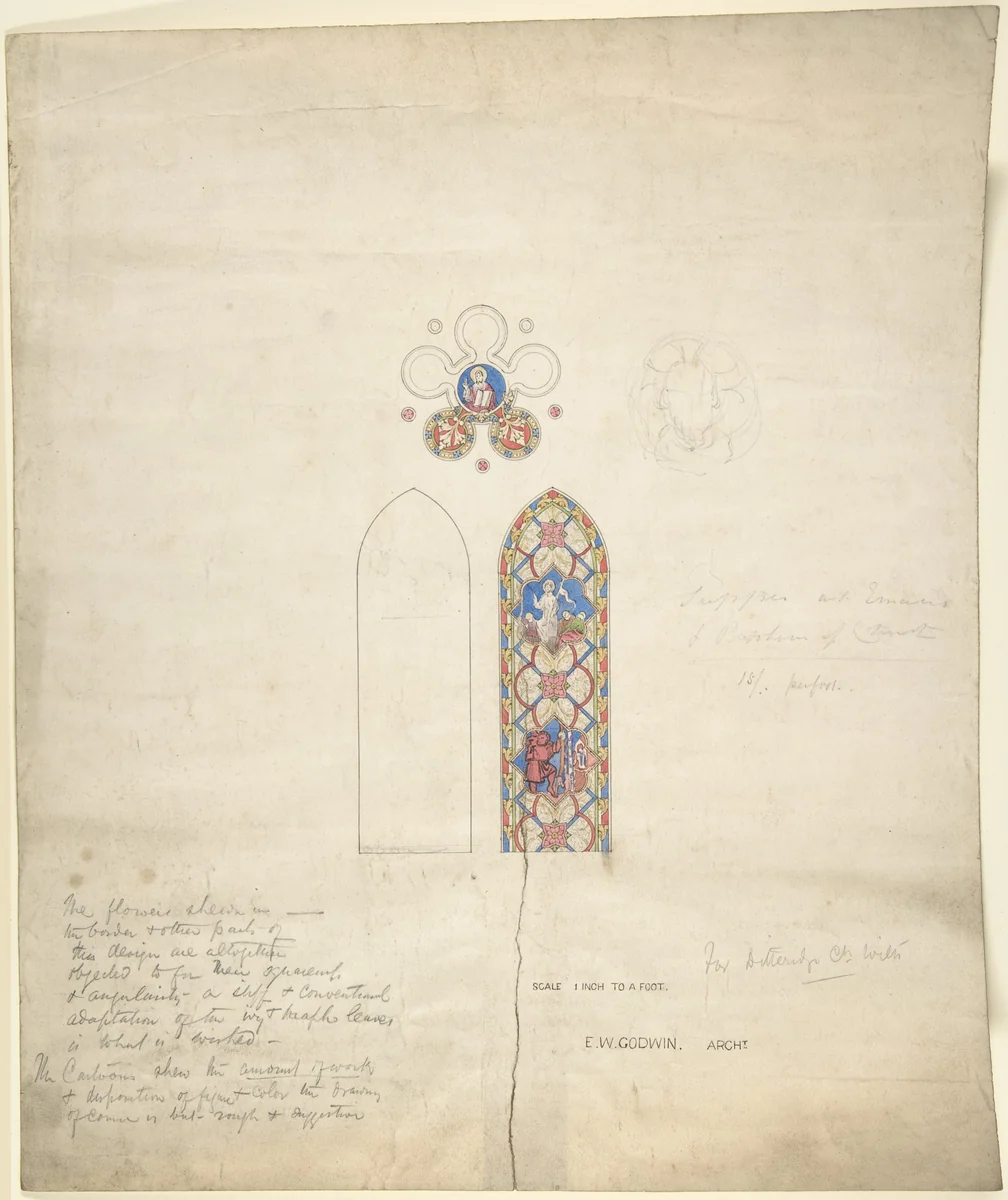 Supper at Emmaus
& Passion of Christ
15/. per foot.
The flowers shewn in —
the border & other parts of
this design are altogether
objected to for their squareness
& angularity - a stiff & conventional
adaptation of the ivy & maple leaves
is what is wished -
The Cartoons shew the amount of work
& disposition of figure & color the drawing
of course is but rough & suggestive
For Ditteridge Ch. Wilts
SCALE 1 INCH TO A FOOT.
E.W. GODWIN. ARCHT